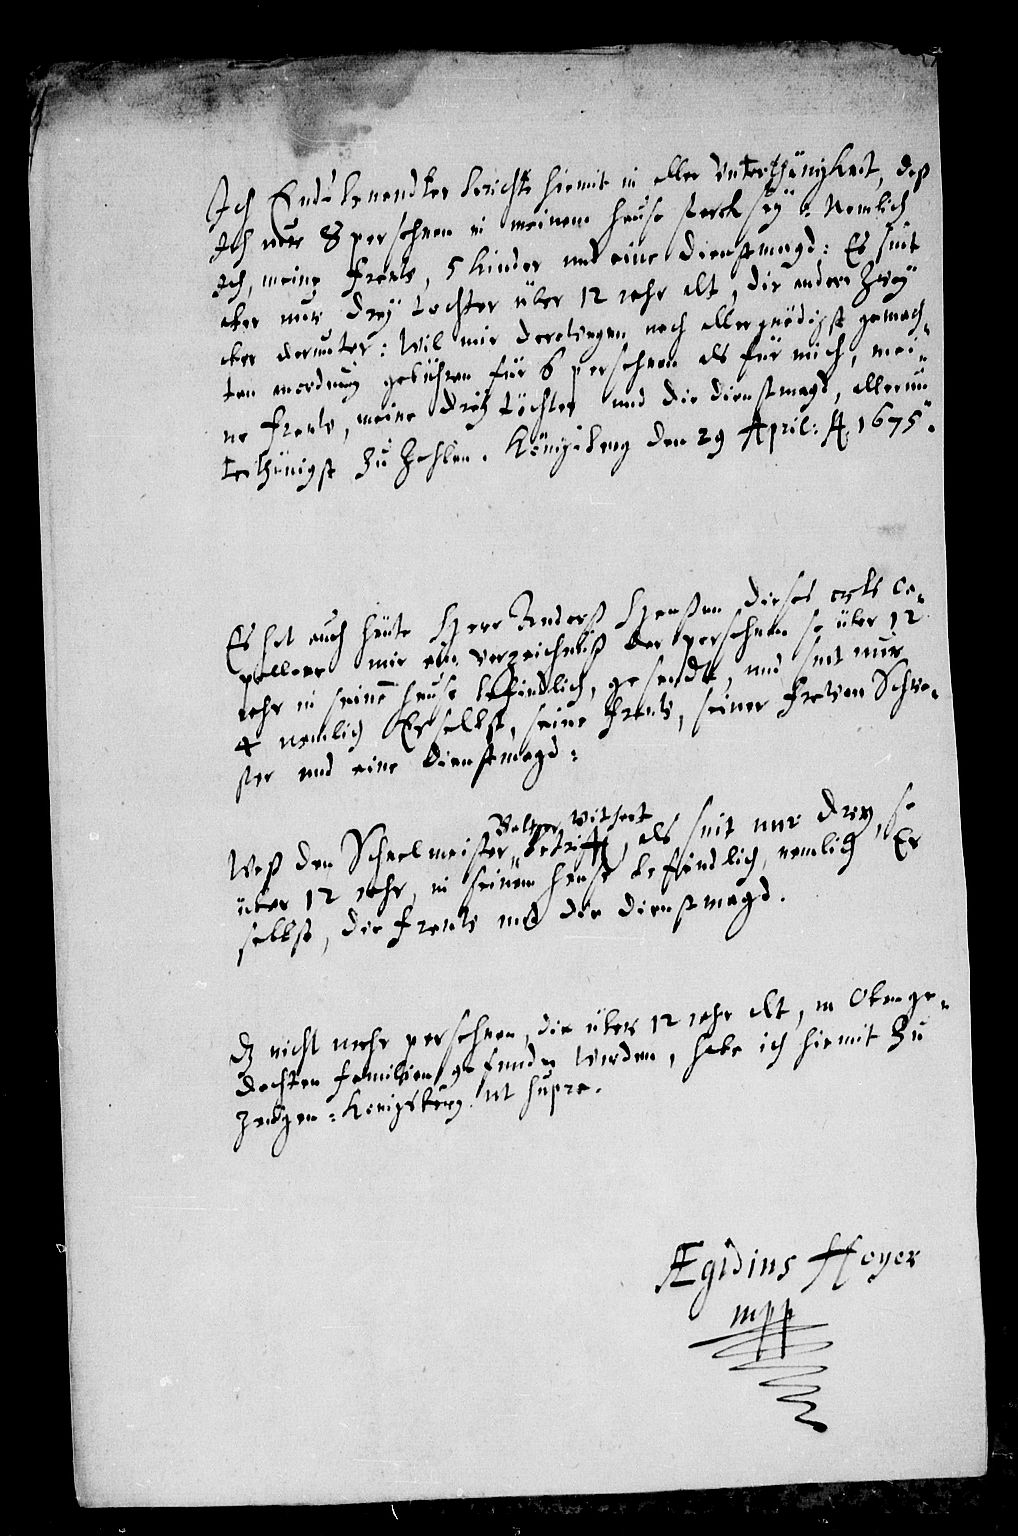 Ich Endts benendter berichte hiemit in aller Unterthänigkeit, daß
Ich nur 8 persohnen in meinem hause starck seÿ: Nemlich
Ich, meine frauw, 5 Kinder und eine dienstmagd: Es sint
aber nur dreÿ töchter über 12 iahr alt, die andere zweÿ
aber darunter: Wil mir derowegen nach allergnädigst gemach-
ten anordnung gebühren für 6 persohnen als für mich, mei-
ne frauw, meine dreÿ töchter und die dienstmagd, allerun-
terthänigst zu zahlen. Königsberg den 29 April: A. 1675.
Es hat auch heute Herr Anders Hanßen dieses orts Ca-
pellan mir ein verzeichniß der persohnen so über 12
iahr in seinem hause befindlich, gesandt, und sint nur
4 nemlich Er selbst, seine frauw, seiner frawen Schwe-
ster und eine dienstmagd:
Waß den Schuelmeister Balzer Withert betrifft, als sint nur drey, so
über 12 iahr, in seinem hause befindlich, nemlich Er
selbst, die frauw und die dienstmagd.
Dz nicht mehr persohnen, die über 12 iahr alt, in Obenge-
dachten familien gefunden werden, habe ich hiemit zu
zeugen: Konigsberg ut supra.
Ægidius Hoyer
mpp